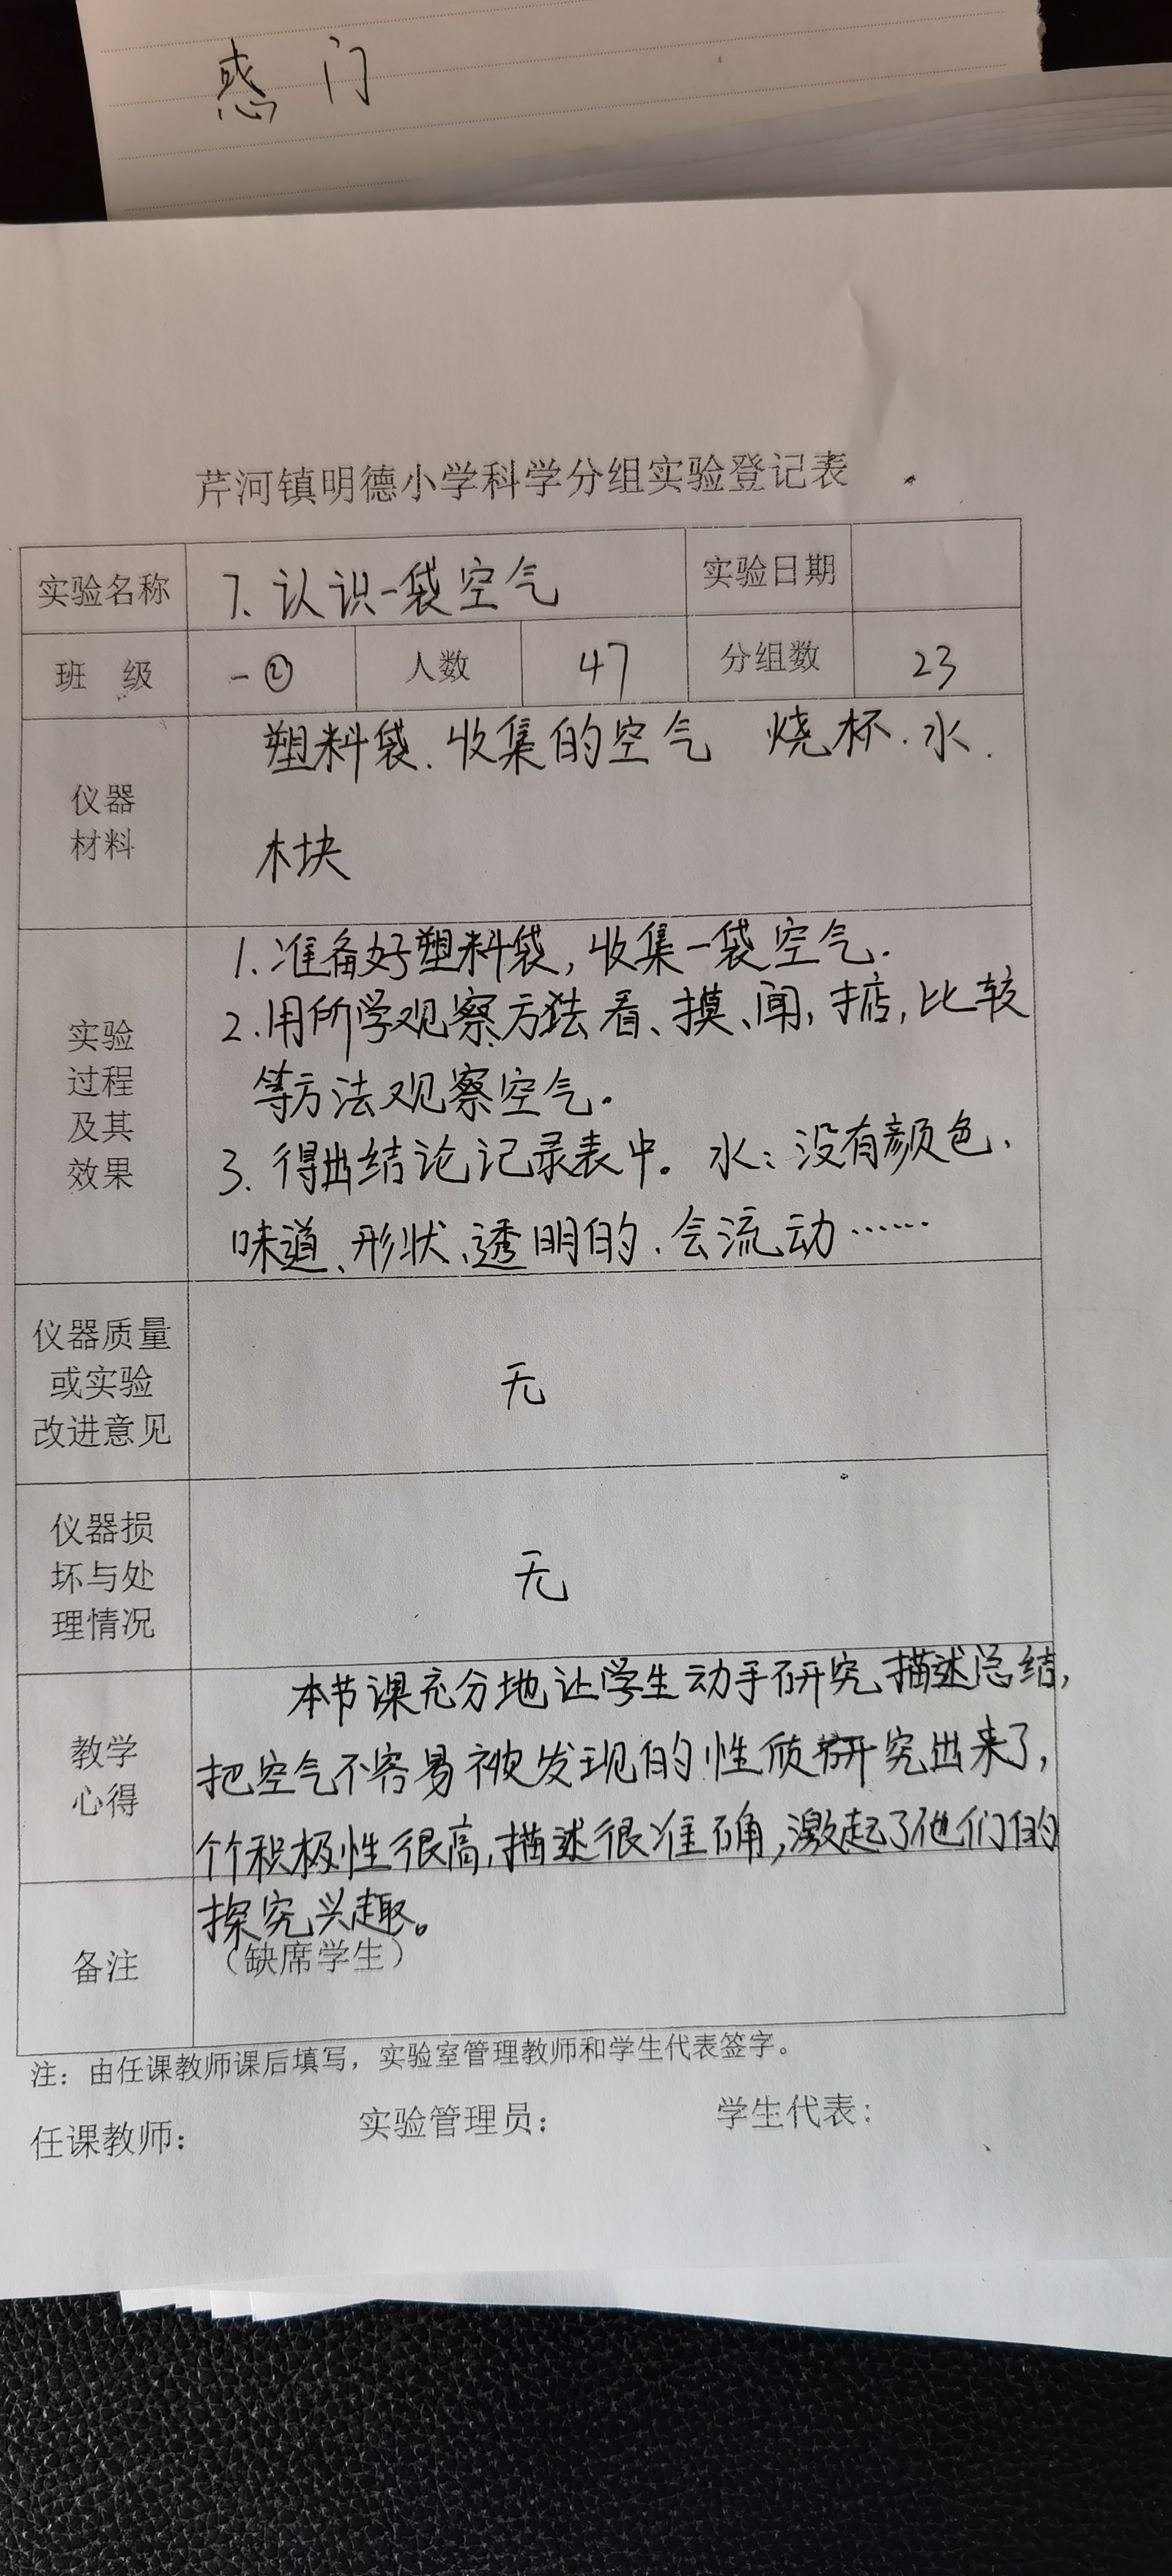 惑 门
芹河镇明德小学科学分组实验登记表
实验名称 7.认识一袋空气 实验日期
班 级 一② 人数 47 分组数 23
仪器材料
塑料袋、收集的空气 烧杯、水、
木块
实验过程及其效果
1.准备好塑料袋,收集一袋空气.
2.用所学观察方法看、摸、闻,掂,比较
等方法观察空气。
3.得出结论记录表中。水:没有颜色、
味道、形状、透明的、会流动……
仪器质量或实验改进意见 无
仪器损坏与处理情况 无
教学心得
本节课充分地让学生动手研究、描述总结,
把空气不容易被发现的性质研究出来了,
个个积极性很高,描述很准确,激起了他们的
探究兴趣。
备注 (缺席学生)
注:由任课教师课后填写,实验室管理教师和学生代表签字。
任课教师: 实验管理员: 学生代表: